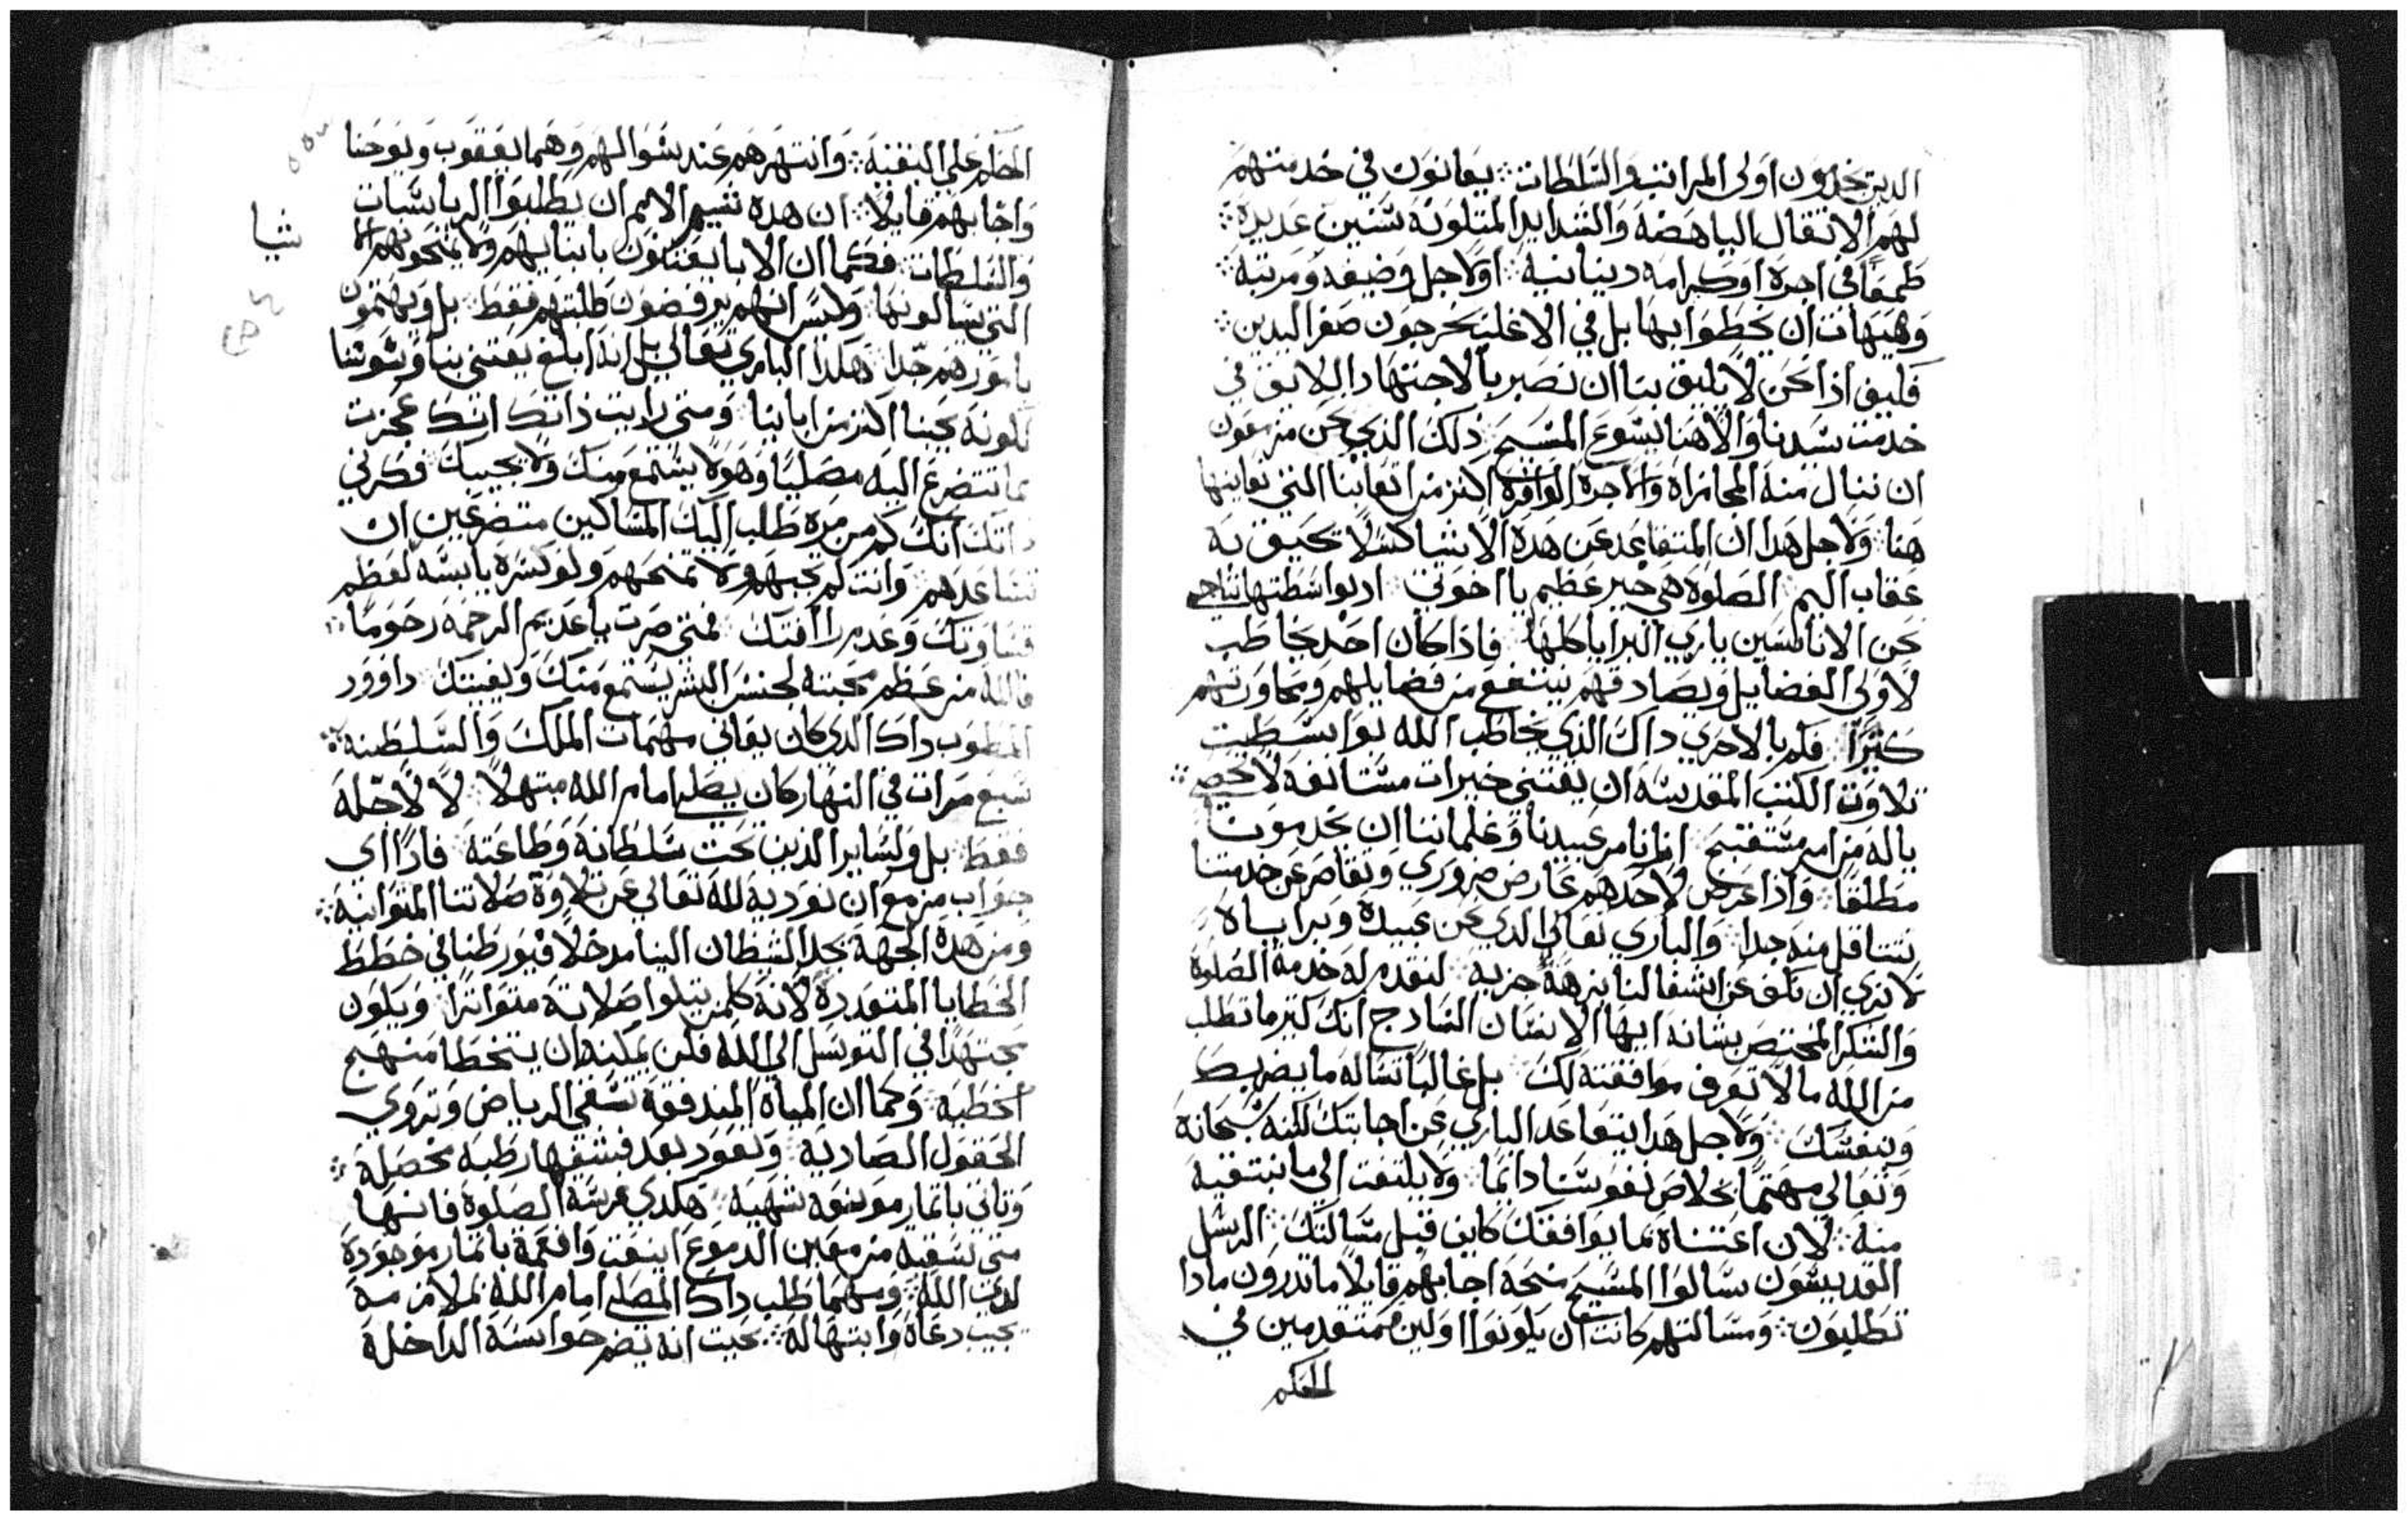 الدين يخدمون اولى المراتب والسلطات ፨ يعانون في خدمتهم
لهم الاثقال الباهضه والشدايد المتلونه سنين عديدة ፨
طمعًا في اجرة او كرامه دينانيه ፨ او لاجل وضيفه ومرتبه ፨
وهيهات ان يحظوا بها بل في الاغلب يخرجون صفر اليدين ፨
فكيف اذا نحن لا يليق بنا ان نصبر بالاجتهاد اللايق في
خدمت سيدنا والاهنا يسوع المسيح ፨ ذلك الذي نحن مزمعون
ان ننال منه المجازاه والاجرة الوافرة اكثر من اتعابنا التي نعاينها
هنا ፨ ولاجل هدا ان المتقاعد عن هدة الاشيا كسلًا تحيق به
عقاب اليم ፨ الصلوة هي خير عظيم يا اخوتي ፨ اد بواسطتها نناجي
نحن الاناملسين باري البرايا كلها ፨ فاذا كان احد يخاطب
لاولي الفضايل ويصادقهم ينتفع من فضايلهم ومحاورتهم
كثيرًا ፨ فكم بالاحري داك الذي يخاطب الله بوابسطيت
تلاوت الكتب المقدسه ان يقتني خيرات مستانفه لا تحصى ፨
ياله من امر مستقبح ፨ اننا نامر عبيدنا وغلماننا ان يخدمونا
مطلقا ፨ واذا عرض لاحدهم عارض ضروري وتقاصر عن خدمتنا
نتثاقل منه جدا ፨ والباري تعالي الدي نحن عبيدة وبراياة
لا نري ان نكف عن اشغالنا بنرهة جزيه ፨ لنقدم له خدمة الصلوة
والشكر المختص بشانه ايها الانسان السادج انك كثير ما تطلب
من الله ما لا تعرف موافقته لك ፨ بل غالبًا تساله ما يضر بك
وبنفسك ፨ ولاجل هدا يتقاعد الباري عن اجابتك لكنه سبحانه
وتعالي مهتمًا بخلاص نفوسنا دايمًا ፨ ولا يلتفت الى ما نبتغيه
منه ፨ لان اعتناه بما يوافقك كاين قبل مسالتك ፨ الرسل
القديسون سالوا المسيح منحة اجابهم قايلًا ما تدرون مادا
تطلبون ፨ ومسالتهم كانت ان يكونوا اولين متقدمين في
الحكم
الحكم على البقية ፨ وانتهرهم عند سوالهم وهما يعقوب ويوحنا
واجابهم قايلًا ፨ ان هده شيم الامم ان يطلبوا الرياسات
والسلطات ፨ فكما ان الابا يعتنون بابنايهم ولا يمنحونهم
التي يسالونها ፨ وليس انهم يرفضون طلبتهم فقط ፨ بل ويهتمون
بامورهم جدًا ፨ هكدا الباري تعالي بل انه ابلغ يعتني بنا ويسوسنا
لكونه يحبنا اكثر من ابايينا ፨ ومتى رايت ذاتك انك عجزت
مما تتضرع اليه مصليًا وهو لا يستمع منك ولا يجيبك ፨ فكر في
ذاتك انك كم من مرة طلب اليك المساكين متضرعين ان
تساعدهم ፨ وانت لم تجبهم ولا تمنحهم ولو كسرة يابسه لعظم
قساوتك وعدم رافتك ፨ فمتى صرت يا عديم الرحمه رحومًا ፨
فالله من عظم محبته لجنس البشر يستمع منك ويغيتك ፨ داوود
المطوب داك الدي كان يعاني مهمات الملك والسلطنه ፨
سبع مرات في النهار كان يصلي امام الله مبتهلًا ፨ لا لاجله
فقط ፨ بل ولساير الذين تحت سلطانه وطاعته ፨ فادًا اي
جواب مزمع ان نوديه لله تعالي عن تلاوة صلاتنا المتوانيه ፨
ومن هدة الجهة يجد الشيطان الينا مدخلًا فيورطنا في خطط
الخطايا المتعددة لانه كلمن يتلوا صلاته متواترًا ፨ ويكون
مجتهدًا في التوسل الى الله فلن يمكنه ان يتخطا منهج
الخطيه ፨ وكما ان المياة المندفقة تسقى الرياض وتروي
الحقول الصاديه ፨ وتعود بعد نشفها رطبه مخصله ፨
وتاتي باثمار مونعه شهيه ፨ هكدي غرسة الصلوة فانها
متى تسقيه من معين الدموع اينعت وافعمة باثمار موجودة
لدى الله ፨ ومهما طلب داك المصلي امام الله بملازمة
يجيب دعاة وابتهاله ፨ بحيت انه يضم حواسه الداخلة
شيا